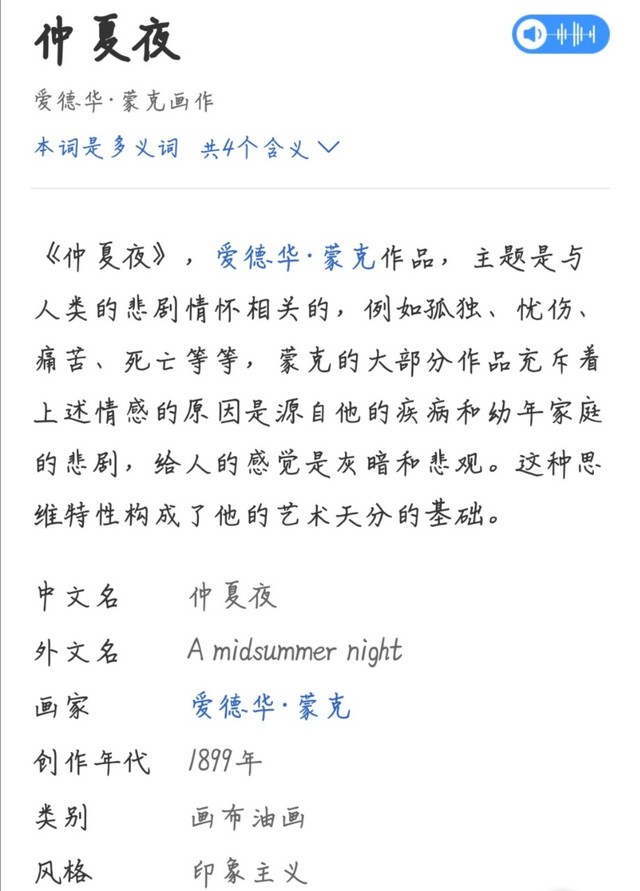 仲夏夜
爱德华·蒙克画作
本词是多义词 共4个含义
《仲夏夜》，爱德华·蒙克作品，主题是与
人类的悲剧情怀相关的，例如孤独、忧伤、
痛苦、死亡等等，蒙克的大部分作品充斥着
上述情感的原因是源自他的疾病和幼年家庭
的悲剧，给人的感觉是灰暗和悲观。这种思
维特性构成了他的艺术天分的基础。
中文名 仲夏夜
外文名 A midsummer night
画家 爱德华·蒙克
创作年代 1899年
类别 画布油画
风格 印象主义